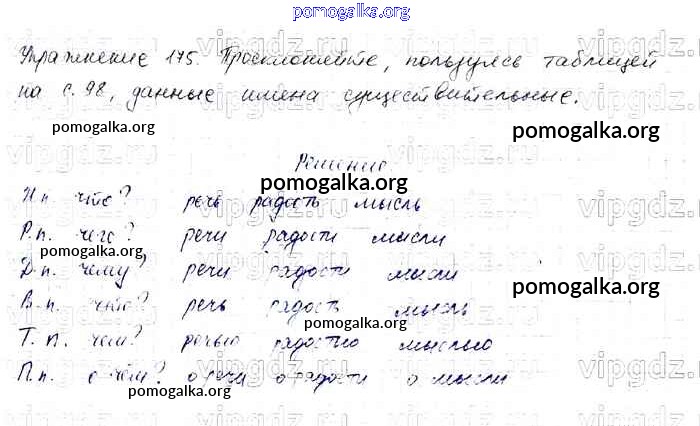 pomogalka.org
Упражнение 175. Просклоняйте, пользуясь таблицей
на с. 98, данные имена существительные.
pomogalka.org pomogalka.org
vipgdz.ru vipgdz.ru vipgdz.ru
Решение.
pomogalka.org
И.п. что? речь радость мысль
Р.п. чего? речи радости мысли
pomogalka.org
Д.п. чему? речи радости мысли
pomogalka.org
В.п. что? речь радость мысль
pomogalka.org
Т.п. чем? речью радостью мыслью
П.п. о чём? о речи о радости о мысли
pomogalka.org pomogalka.org